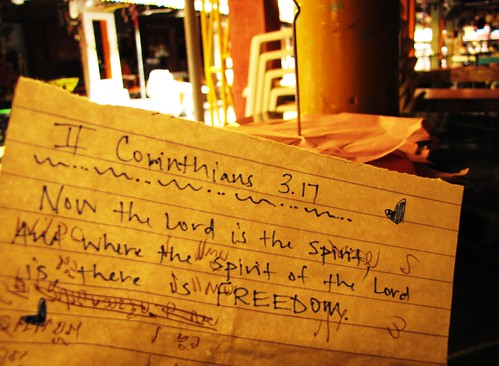 II Corinthians 3.17
Now the Lord is the Spirit,
And where the Spirit of the Lord
is there is FREEDOM.